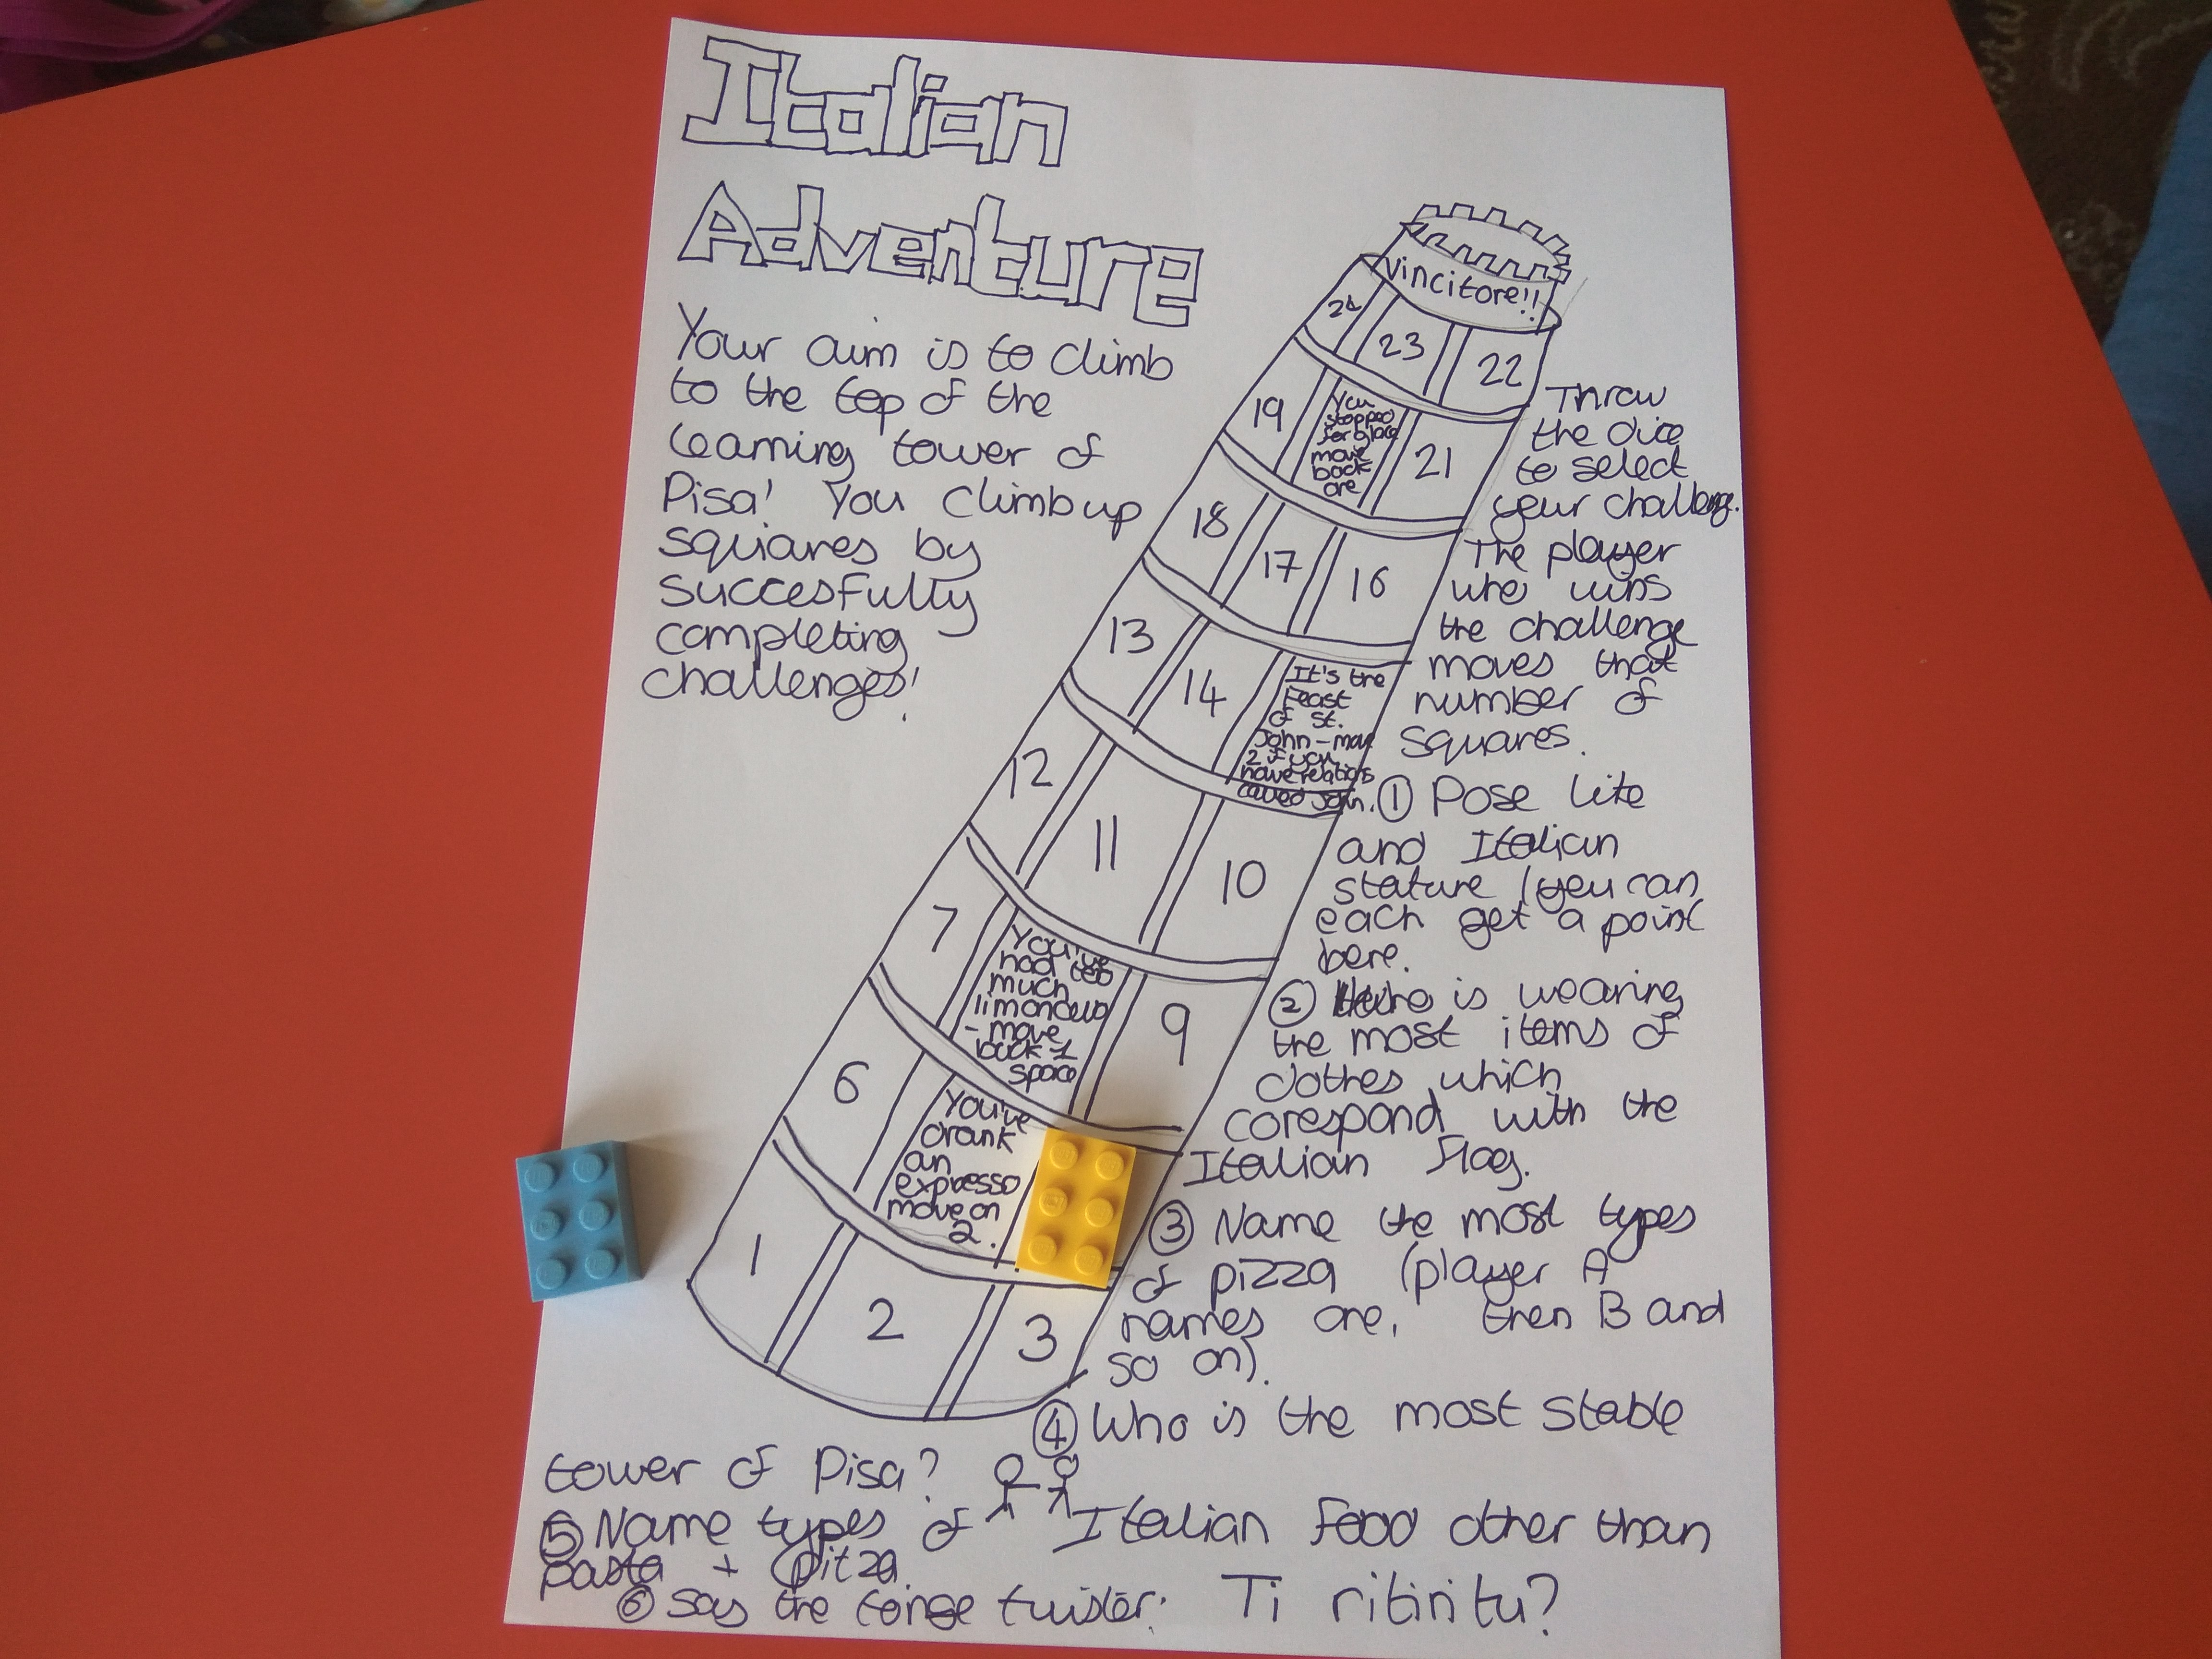 Italian
Adventure
Your aim is to climb
to the top of the
leaning tower of
Pisa! You climb up
squares by
succesfully
completing
challenges!
vincitore!!
24 23 22
19
You
stopped
for
move
back
one
21
18 17 16
13 14
It's the
Feast
of st.
John - move
2 if you
have relatios
called John.
12 11 10
7
You've
had too
much
limoncello
- move
back 1
space
9
6
You've
drank
an
expresso
move on
2.
1 2 3
Throw
the dice
to select
your challenge.
The player
who wins
the challenge
moves that
number of
squares.
① Pose like
and Italian
stature (you can
each get a point
here.
② Who is wearing
the most items of
clothes which
corespond with the
Italian flag.
③ Name the most types
of pizza (player A
names one, then B and
so on).
④ Who is the most stable
tower of Pisa?
⑤ Name types of Italian food other than
pasta + pitza.
⑥ Say the tonge twister: Ti ritiri tu?